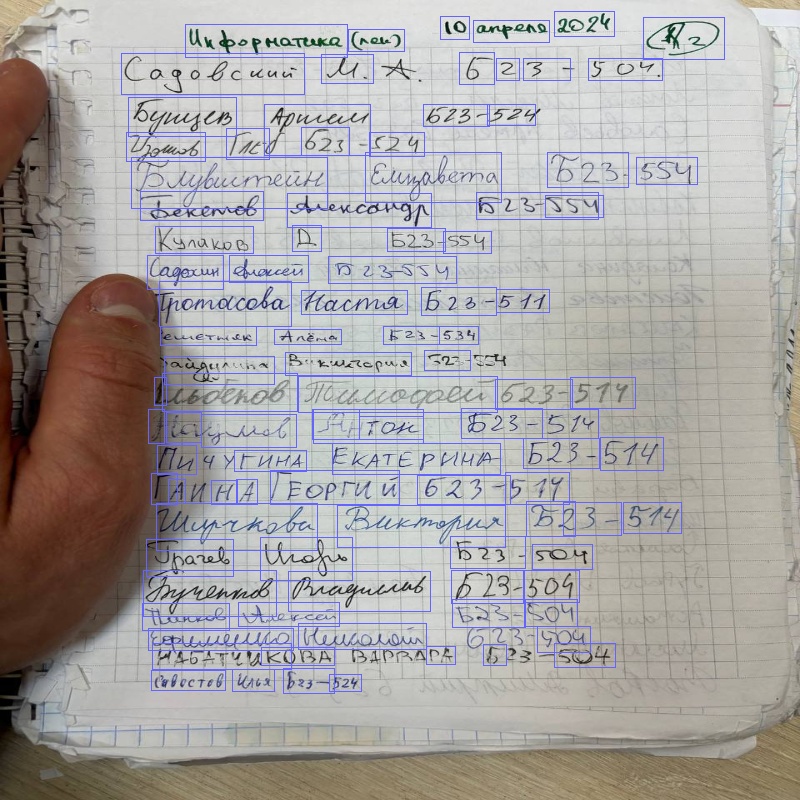 Информатика (лек) 10 апреля 2024
Садовский М. А. Б23-504.
Бунцев Артем Б23-524
Глеб Б23-524
Блувштейн Елизавета Б23-554
Бекетов Александр Б23-554
Кулаков Д Б23-554
Садохин Алексей Б23-554
Протасова Настя Б23-511
Решетняк Алёна Б23-534
Виктория Б23-554
Тимофей Б23-514
Наумов Антон Б23-514
ПИЧУГИНА ЕКАТЕРИНА Б23-514
ГАИНА ГЕОРГИЙ Б23-514
Шурчкова Виктория Б23-514
Грачев Игорь Б23-504
Бученков Владислав Б23-504
Алексей Б23-504
Ефименко Николай Б23-504
НАБАТЧИКОВА ВАРВАРА Б23-504
Савостов Илья Б23-524